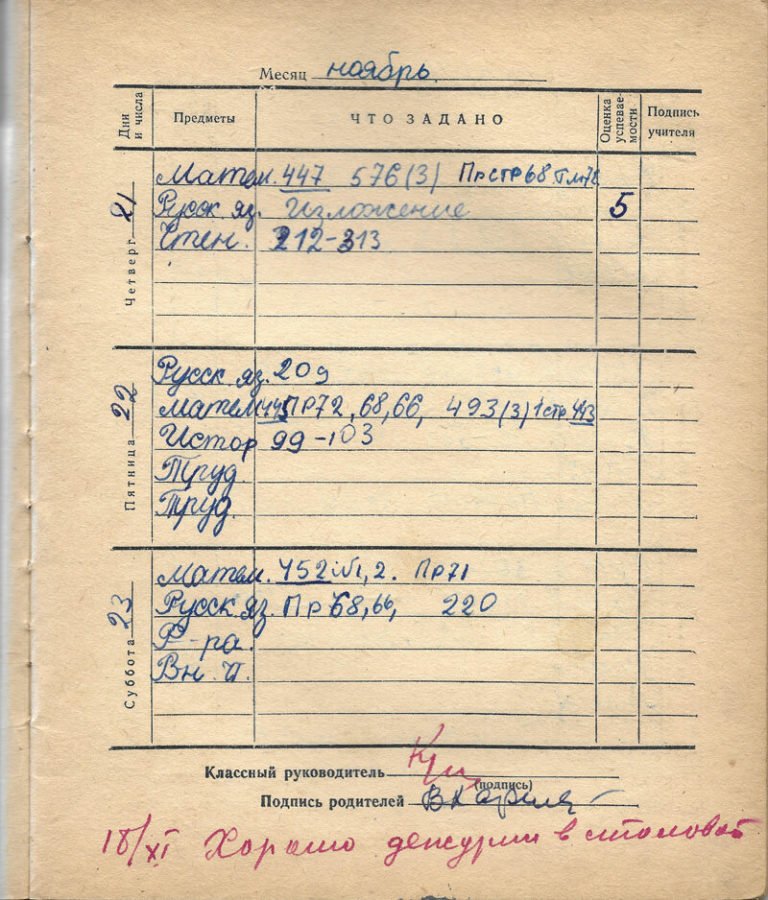 Месяц ноябрь
Дни и числа Предметы ЧТО ЗАДАНО Оценка успевае-мости Подпись учителя
Четверг 21
Матем. 447 576(3) Пр стр 68
Русск яз. Изложение 5
Чтен. 212-313
Пятница 22
Русск яз. 209
Матем 445 ПР72, 68, 66, 493(3) 1 стр 443
Истор 99-103
Труд.
Труд.
Суббота 23
Матем. 452 №1, 2. Пр71
Русск яз. Пр 68, 66, 220
Ф-ра.
Вн. ч.
Классный руководитель
(подпись)
Подпись родителей
18/XI Хорошо дежурил в столовой